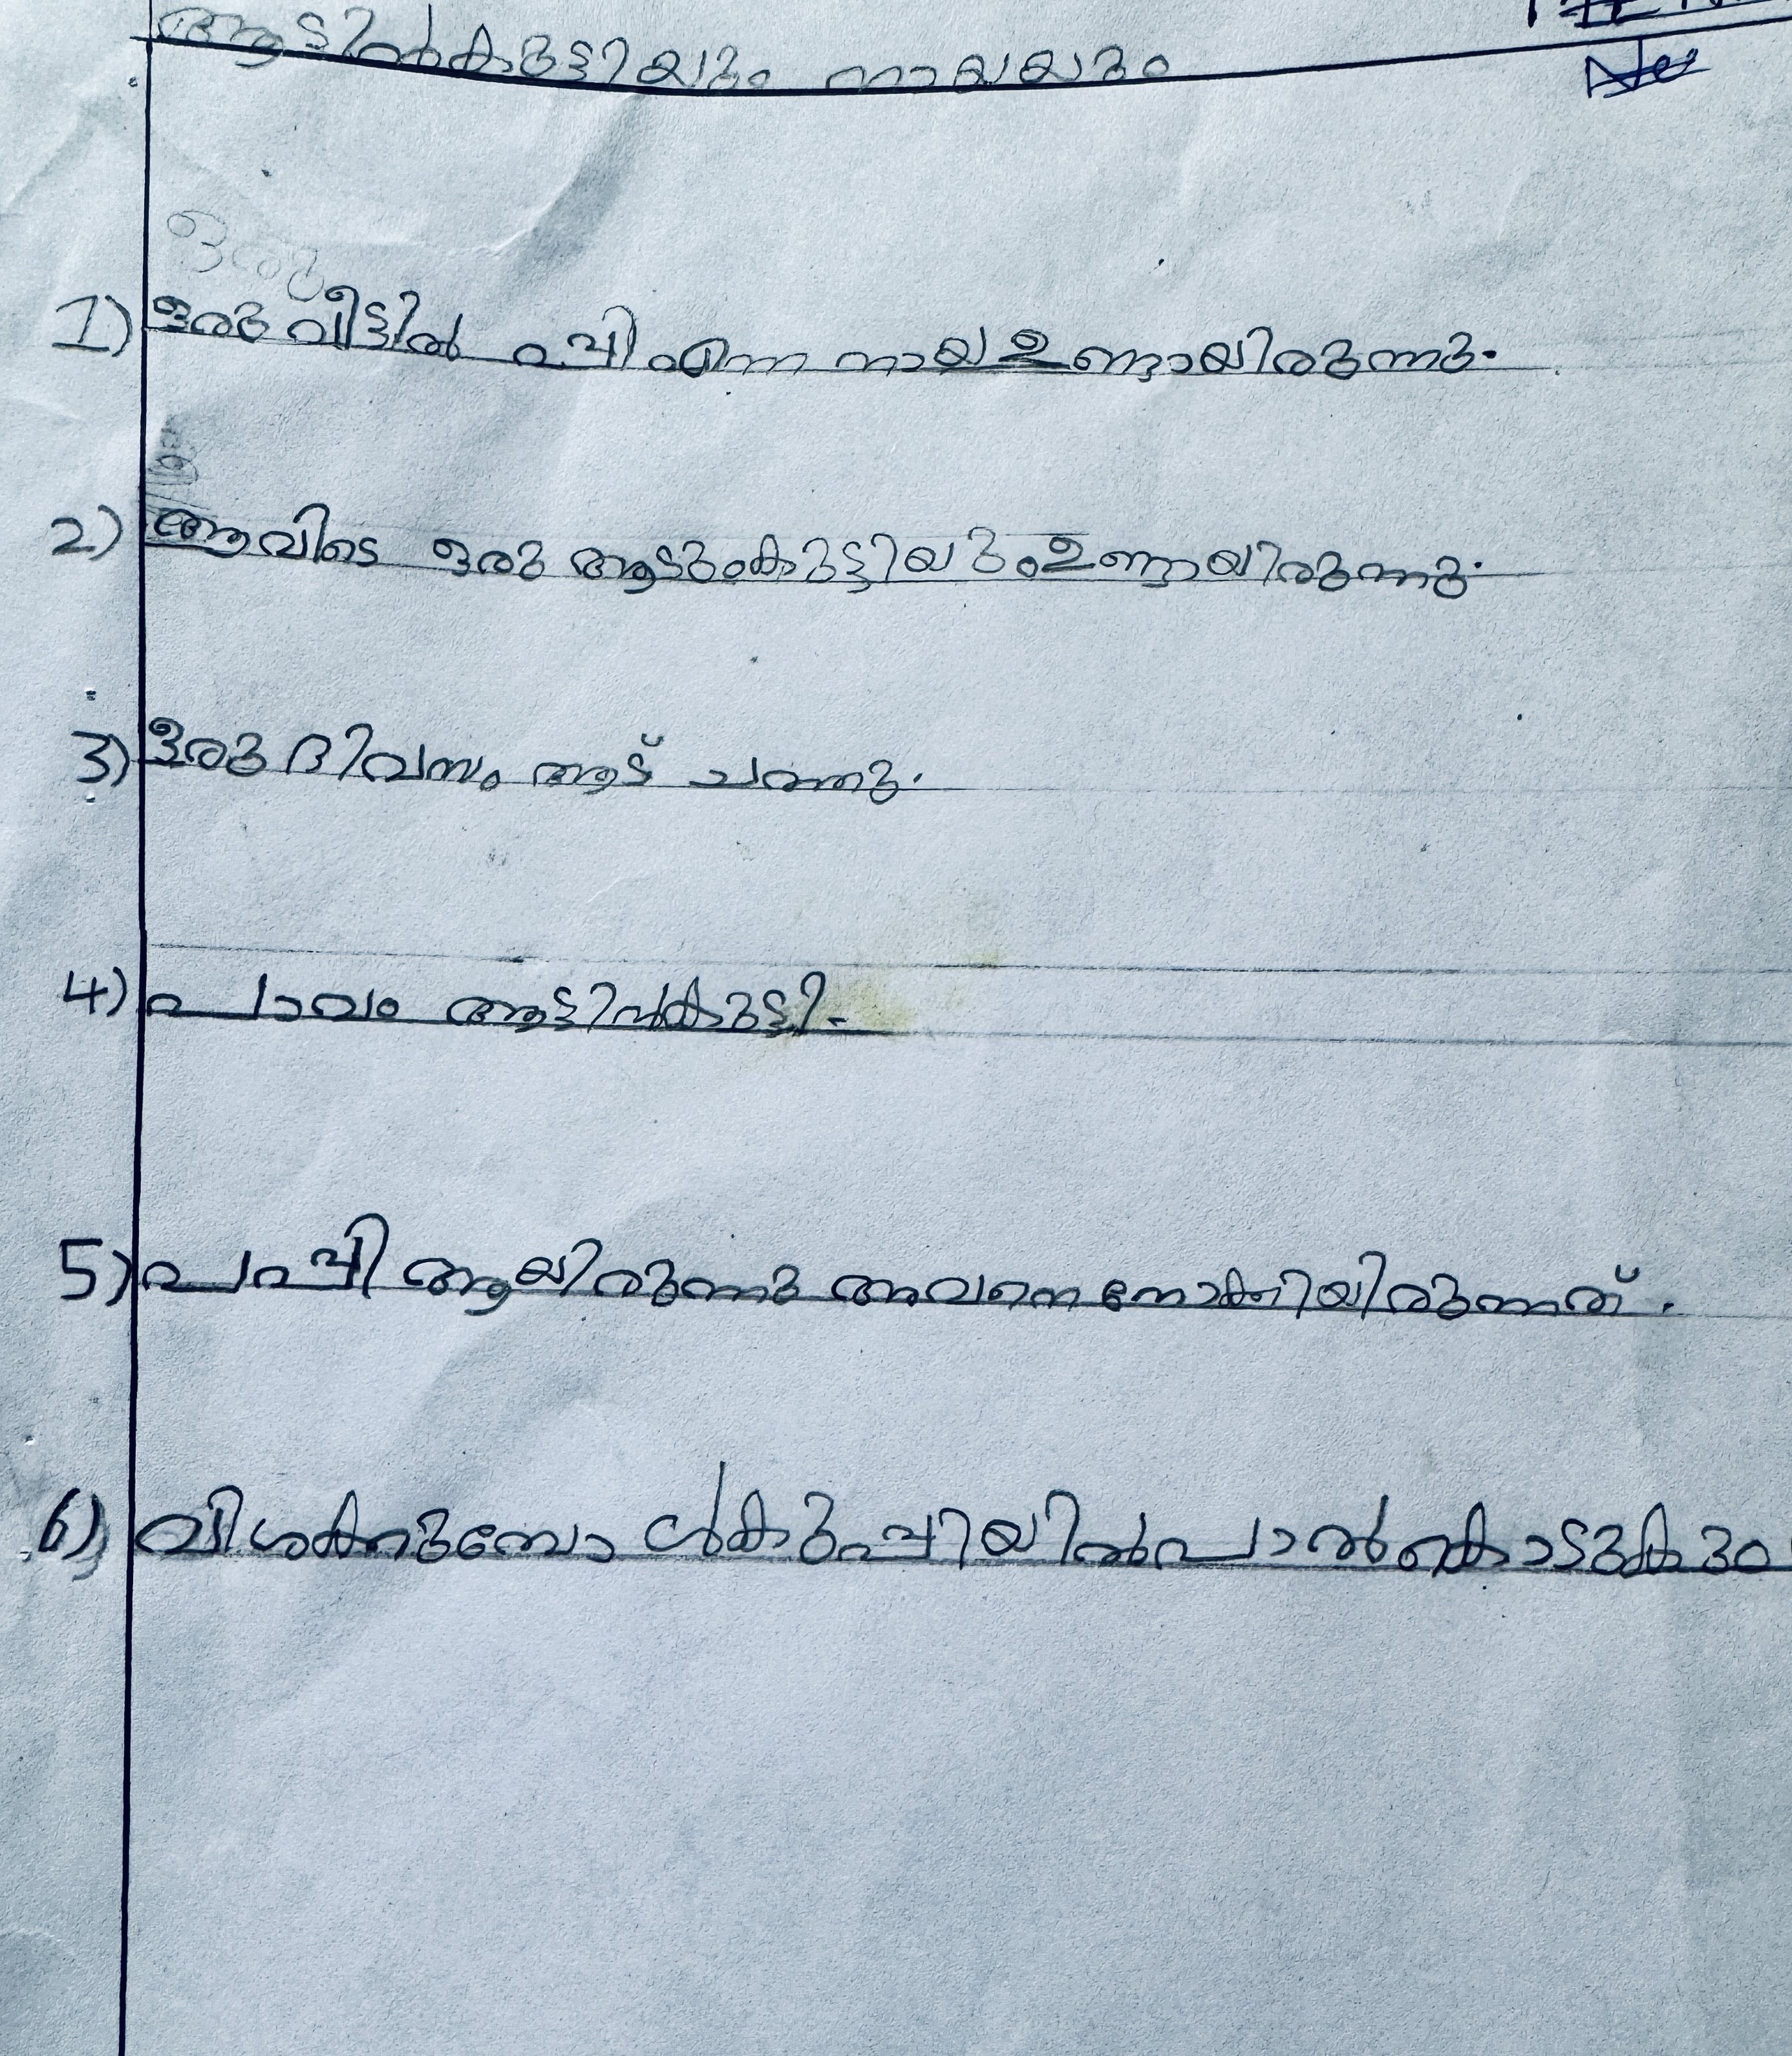 ആടിൽകുട്ടിയും നായയും
ഒരു
1) ഒരു വീട്ടിൽ പപ്പി എന്ന നായ ഉണ്ടായിരുന്നു.
2) ആവിടെ ഒരു ആടുംകുട്ടിയും ഉണ്ടായിരുന്നു.
3) ഒരു ദിവസം ആട് ചത്തു.
4) പാവം ആട്ടിൻകുട്ടി.
5) പപ്പി ആയിരുന്നു അവനെ നോക്കിയിരുന്നത്.
6) വിശക്കുമ്പോൾ കുപ്പിയിൽ പാൽ കൊടുകും